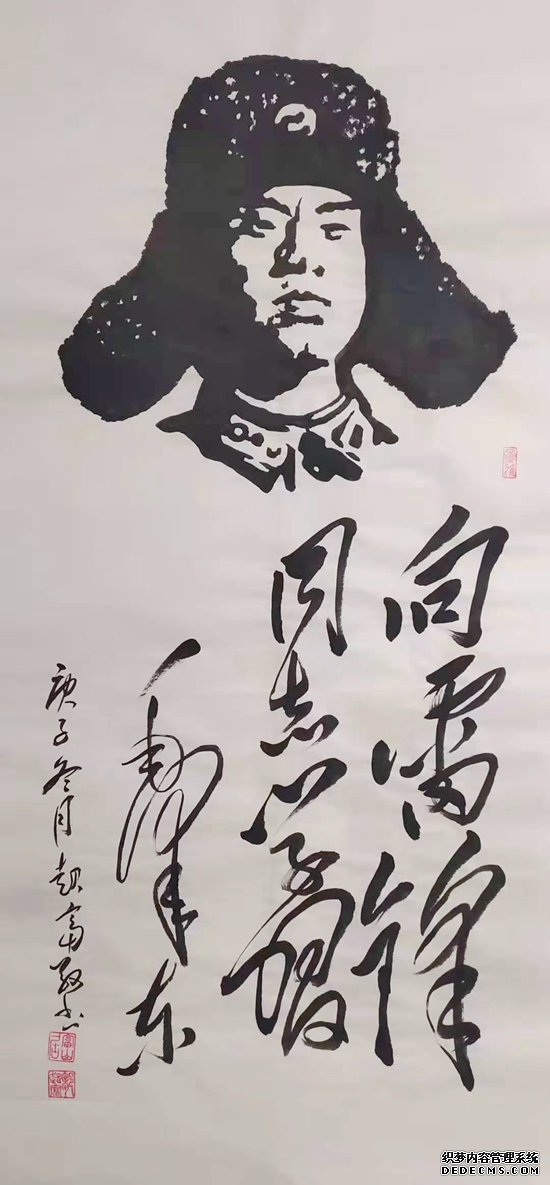 向雷锋
同志学习
毛泽东
庚子冬月赵富敬书
织梦内容管理系统
DEDECMS.COM